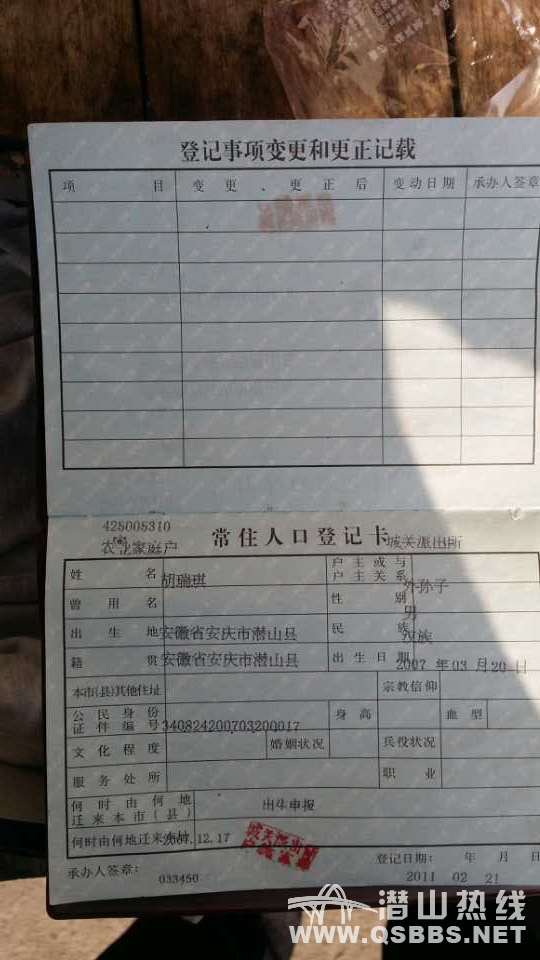 登记事项变更和更正记载
项 目 变 更 、 更 正 后 变动日期 承办人签章
425005310
农业家庭户 常住人口登记卡 城关派出所
姓 名 胡瑞琪 户主或与户主关系 外孙子
曾 用 名 性 别 男
出 生 地 安徽省安庆市潜山县 民 族 汉族
籍 贯 安徽省安庆市潜山县 出 生 日 期 2007 年 03 月 20 日
本市(县)其他住址 宗教信仰
公民身份证件编号 340824200703200017 身 高 血 型
文 化 程 度 婚姻状况 兵役状况
服 务 处 所 职 业
何时由何地迁来本市(县) 出生申报
何时由何地迁来本址 2007.12.17
承办人签章: 033450 登记日期: 年 月 日
2011 02 21
潜山热线
WWW.QSBBS.NET